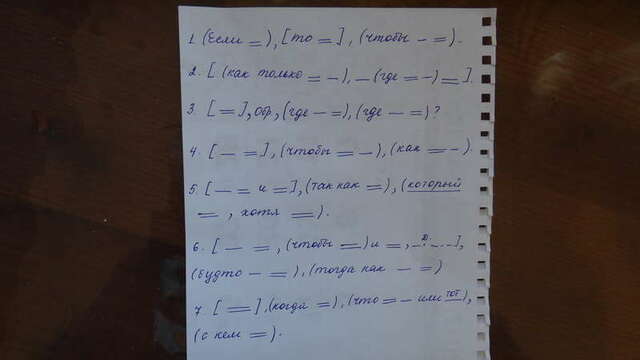 1. (Если =), [то =], (чтобы – =).
2. [. (как только = –), – (где = –) =].
3. [=], обр, (где – =), (где – =)?
4. [– =], (чтобы = –), (как = –).
5. [– = и =], (так как =), (который
=, хотя =).
6. [ – =, (чтобы =) и =, –.Д.–.–],
(будто – =), (тогда как – =)
7. [=], (когда =), (что = – или тот),
(с кем =).